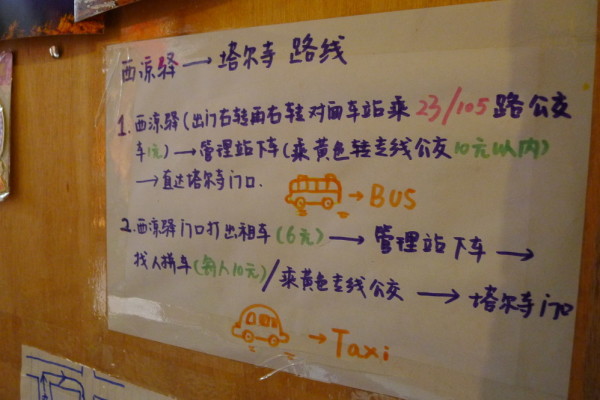 西凉驿→塔尔寺 路线
1.西凉驿(出门右转再右转对面车站乘 23/105 路公交
车1元)→管理站下车(乘黄色转专线公交10元以内)
→直达塔尔寺门口.
→BUS
2.西凉驿门口打出租车(6元)→管理站下车→
找人拼车(每人10元)/乘黄色专线公交→塔尔寺门口
→Taxi